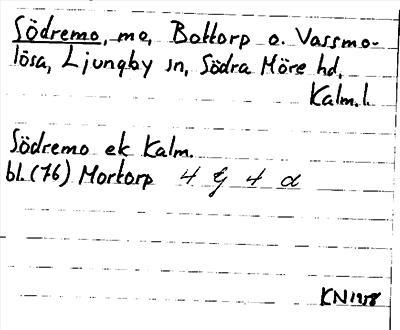 Södremo, mo, Bottorp o. Vassmo-
lösa, Ljungby sn, Södra Möre hd,
Kalm. l.
Södremo ek Kalm.
bl. (76) Mortorp 4 g 4 d